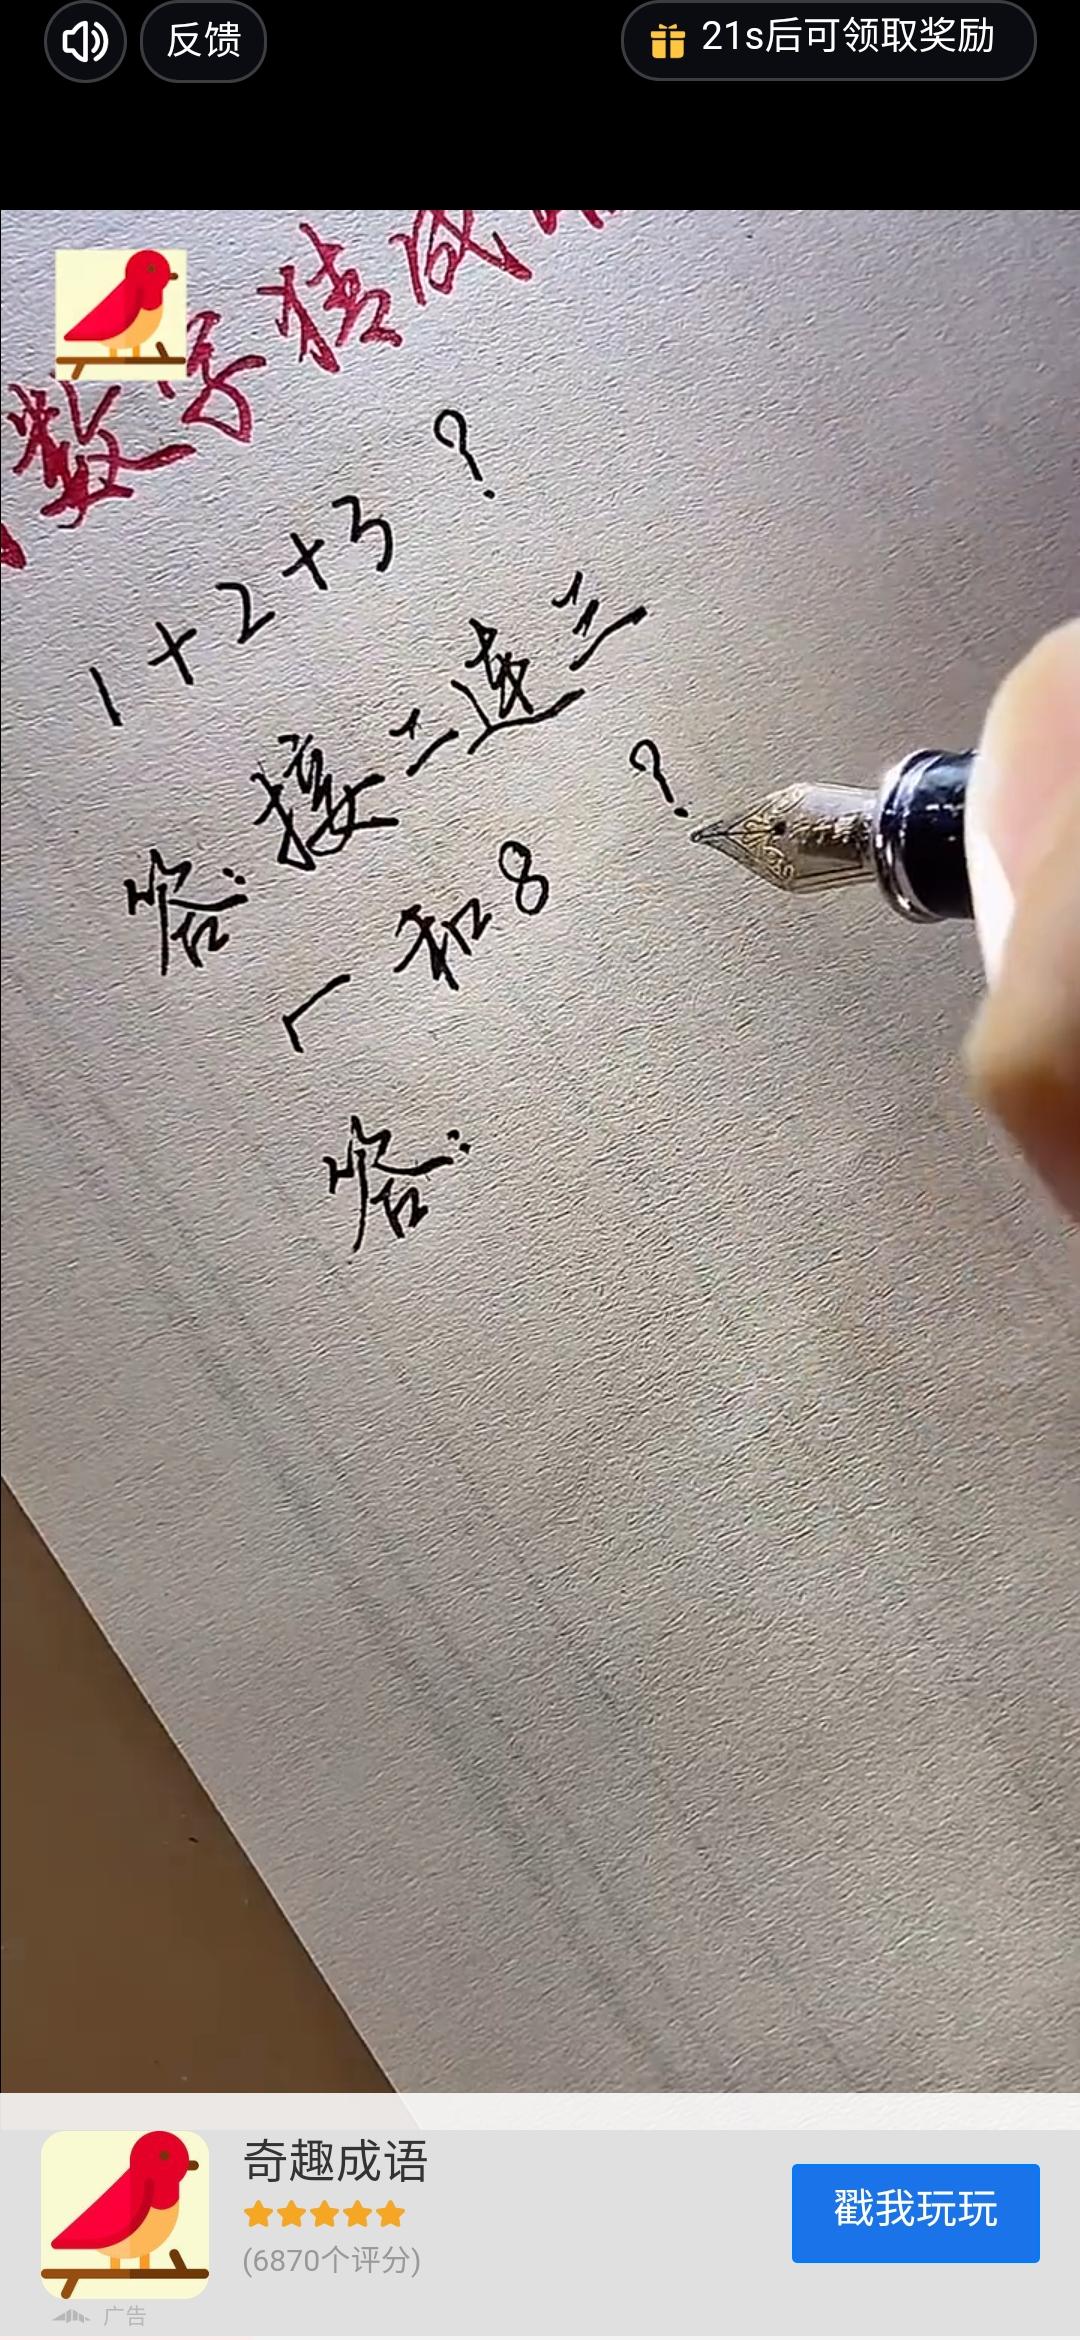 反馈
21s后可领取奖励
数字猜成
1+2+3?
答:接二连三
厂和8?
答:
奇趣成语
(6870个评分)
戳我玩玩
广告